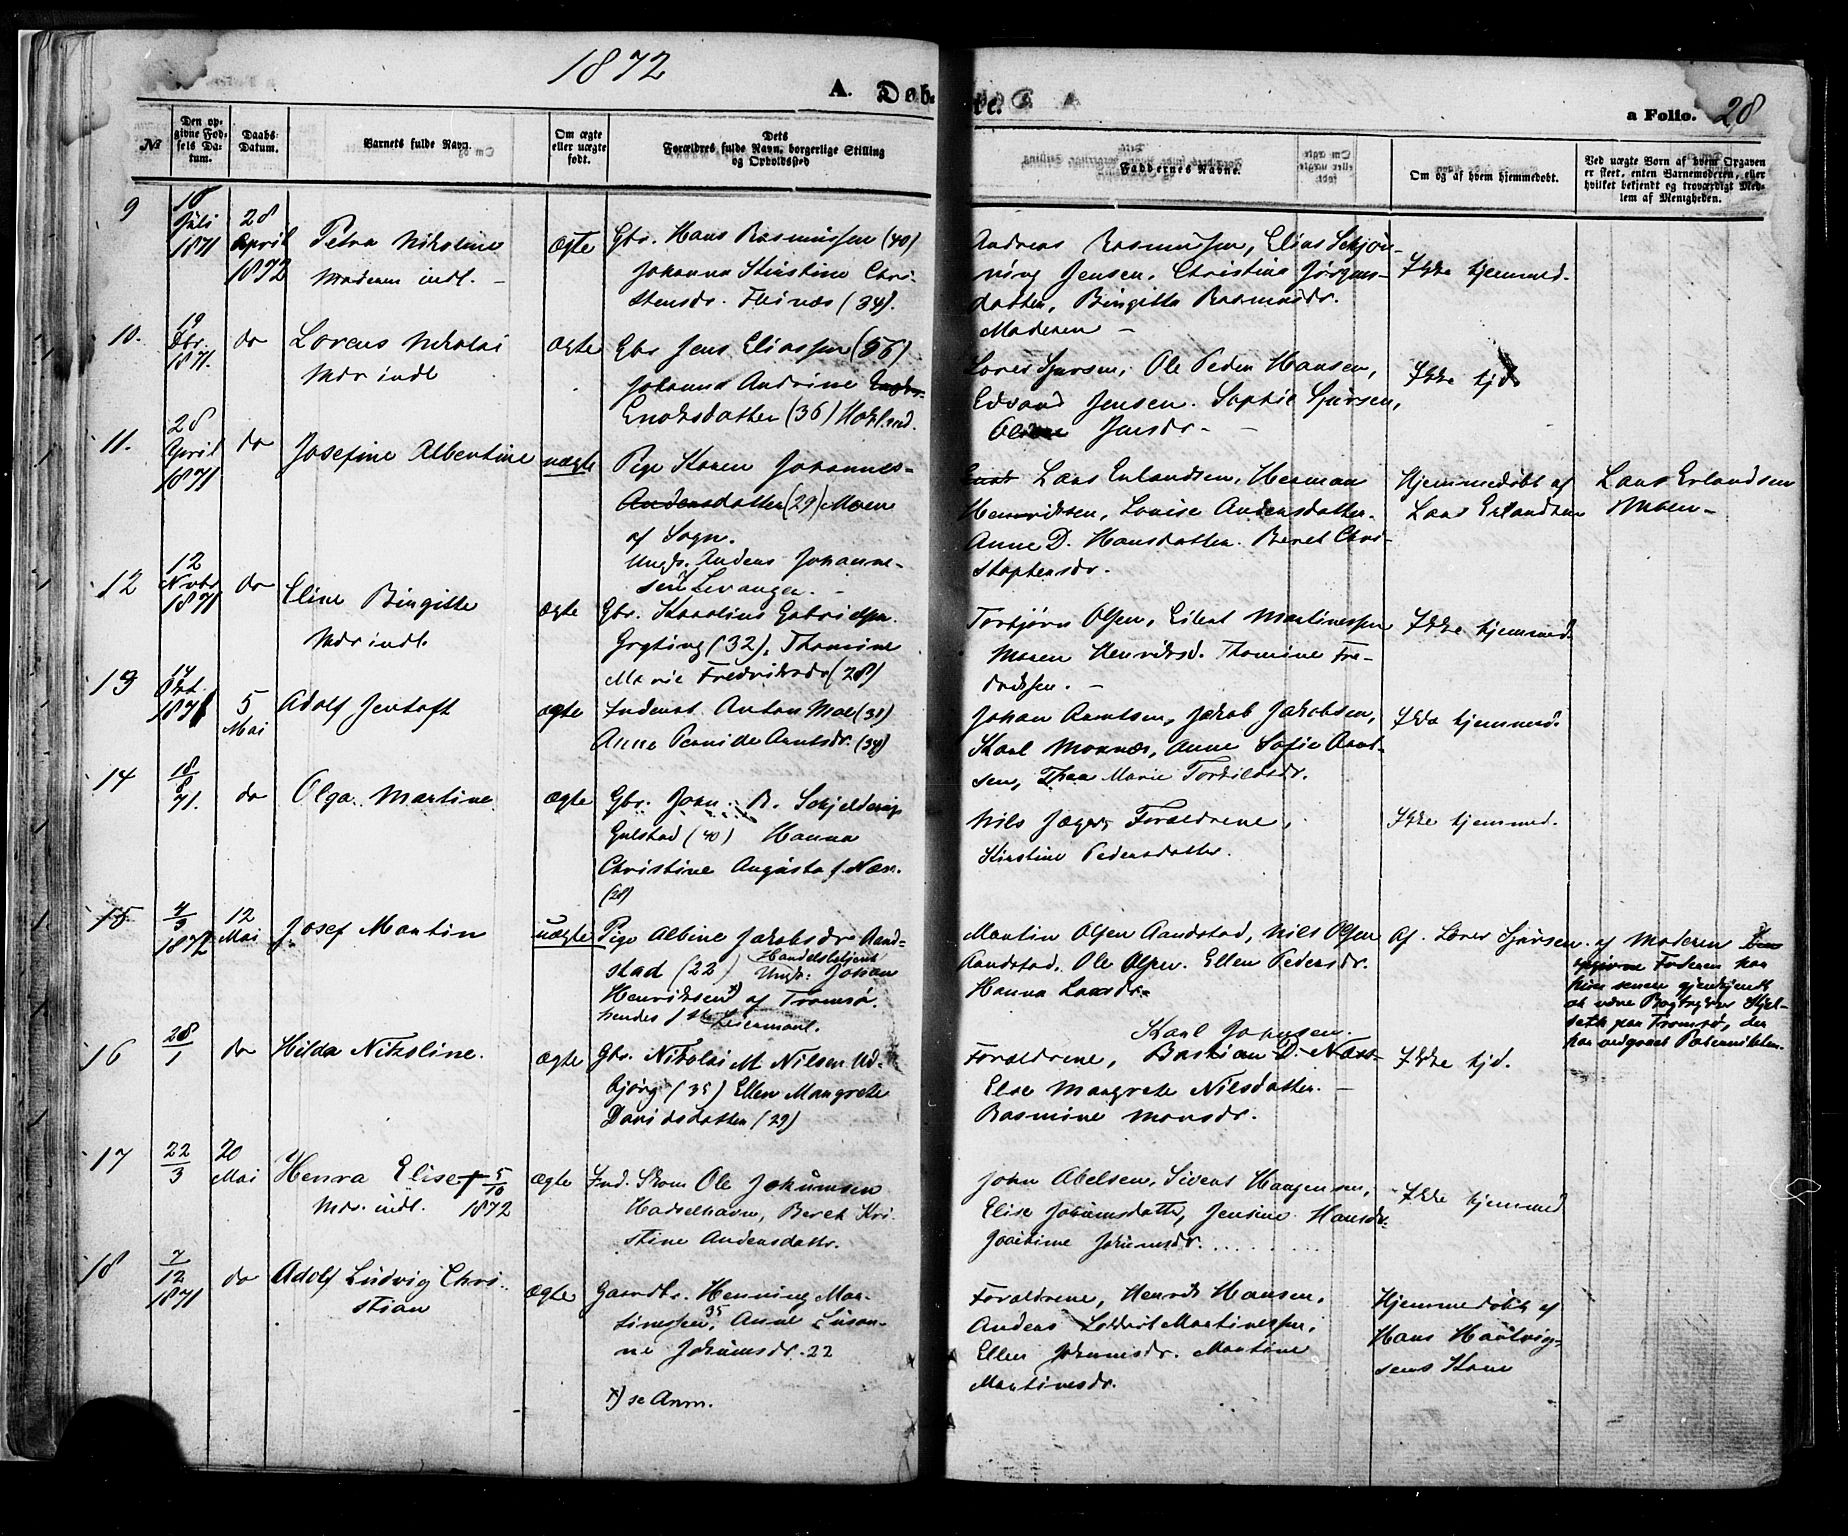 1872
A. Døb-
te.
a Folio. 28
No
Den op-
givne Fød-
sels Da-
tum.
Daabs-
Datum.
Barnets fulde Navn.
Om ægte
eller uægte
født.
Dets
Forældres fulde Navn, borgerlige Stilling
og Opholdssted
Faddernes Navne.
Om og af hvem hjemmedøbt.
Ved uægte Børn af hvem Opgaven
er skeet, enten Barnemoderen, eller
hvilket bekjendt og troværdigt Med-
lem af Menigheden.
9
18
Juli
1871
28
April
1872
Petra Nikoline
Moderen indl. -
Ægte
Gbr. Hans Rasmussen (40)
Johanna Kirstine Chri-
stensdr. Fleinæs (34).
Andreas Rasmussen, Elias Schjøn-
ning Jensen, Christine Jørgens-
datter, Birgitte Rasmusdr.
Moderen -
Ikke hjemmed.
10.
19
1871.
do
Lorens Nikolai
Mdr indl
Ægte
Gbr Jens Eliassen (36)
Johanna Andrine
Enoksdatter (36) Hokland.
Lorens Sjursen, Ole Peder Hansen,
Edvard Jensen. Sophie Sjursen,
Jensdr. -
Ikke hjd
11.
28
April
1871
do
Josefine Albertine
uægte
Pige Karen Johannes-
Andersdatter (29) Moen
af Sogn.
Ungk. Anders Johanne-
sen Levanger. -
Lars Erlandsen, Herman
Henriksen, Lovise Andersdatter.
Anne D. Hansdatter. Beret Chri-
stophersdr.
Hjemmedøbt af
Lars Erlandsen
Lars Erlandsen
Moen -
12
12
Novbr
1871
do
Eline Birgitte
Mdr indl.
Ægte
Gbr. Karolius Gabrielsen
Grytting (32), Thomine
Marie Fredriksdr (28)
Torbjørn Olsen, Eilert Martinessen
Maren Henriksd. Thomine Fre-
driksen. -
Ikke hjemmed.
13
14
Okt.
1871
5
Mai
Adolf Jentoft
Ægte
Inderst Anton Moe (31)
Anne Pernille Arntsdr. (34)
Johan Arntsen, Jakob Jakobsen,
Karl Moxnæs, Anne Sofie Arnt-
sen, Thea Marie Torkildsdr.
Ikke hjemmed.
14
18
8
71.
do
Olga Martine
Ægte
Gbr. John B. Schjelderup
Gulstad (40) Hanna
Christine Augusta f. Næss.
(28)
Nils Jæger, Forældrene,
Kirstine Pedersdatter.
Ikke hjemmed.
15
4
3
1872
12
Mai
Josef Martin
uægte
Pige Albine Jakobsdr Rand-
stad (22) Handelsbetjent
Ungk: Johan
Henriksen x) af Tromsø.
hendes Leiermaal.
Martin Olsen Randstad, Nils Olsen
Randstad, Ole Olsen. Ellen Pedersdr.
Hanna Larsdr.
Af. Lorns Sjursen.
af Moderen Den
opgivne Faderen har
hun senere gjenkjendt
at være Bogtrykker Kjel-
seth paa Tromsø, der
har vedgaaet Paterniteten.
16
28
1
do
Hilda Nikoline.
Ægte
Gbr. Nikolai M Nilsen Ud-
bjørg (35) Ellen Margrete
Davidsdatter (29)
Karl Johnsen.
Forældrene, Bastian D. Næss-
Else Margrete Nilsdatter. -
Rasmine Monsdr.
Ikke hjd.
17
22
3
20
Mai
Henra Elise † 5/10
Mdr. indl. 1872
Ægte
Ind. Skom Ole Jokumsen
Hadselhavn, Beret Kri-
stine Andersdatr.
John Abelsen, Sivert Haagensen,
Elise Jokumsdatter, Jensine Hansdr.
Joakime Jokumsdr.
Ikke hjemmed
18
7
12
1871
do
Adolf Ludvig Chri-
stian
Ægte
Gaardbr. Henning Mar-
tinessen, 35 Anne Susan-
ne Jokumsdr. 22
x) se Anm.
Forældrene, Henrik Hansen,
Anders Martinessen,
Ellen Jokumsdr. Martine
Martinesdr.
Hjemmedøbt af
Hans Hartvig-
sens Kone